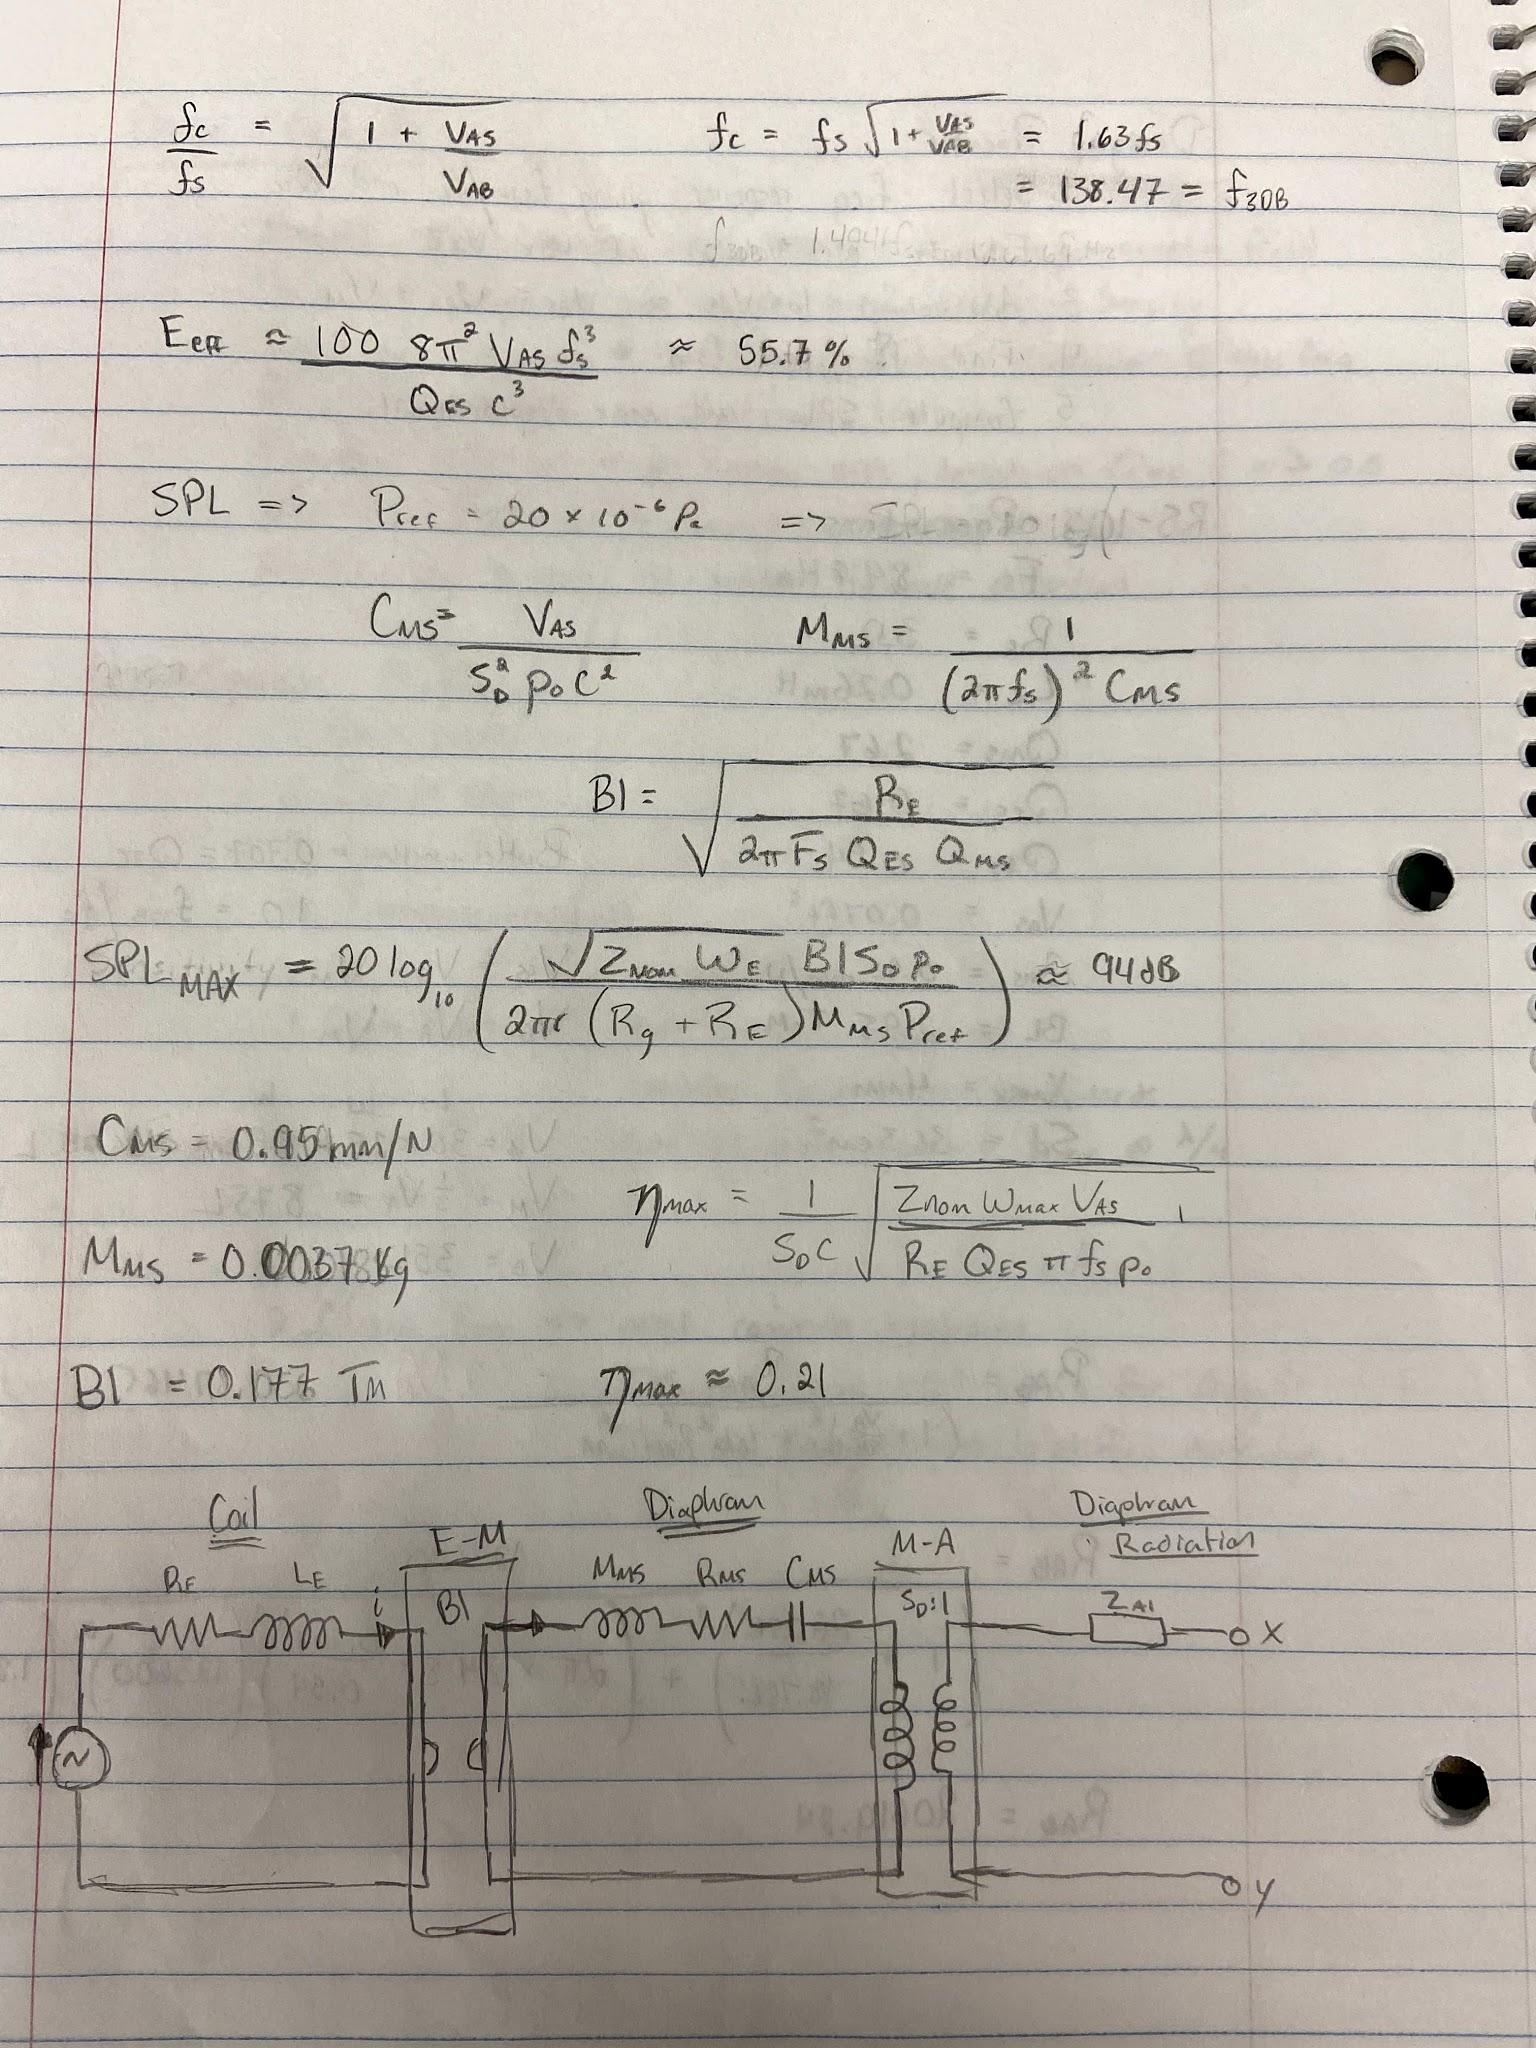 fc/fs = √(1 + VAS/VAB)    fc = fs √(1 + VAS/VAB) = 1.63 fs
= 138.47 = f3DB
Eeff ≈ (100 8π² VAS fs³)/(QES c³) ≈ 55.7 %
SPL => Pref = 20 × 10⁻⁶ Pa =>
CMS = VAS/(SD² ρ0 c²)    MMS = 1/((2πfs)² CMS)
Bl = √(RE/(2π Fs QES QMS))
SPL MAX = 20 log10 ((√(Znom WE) Bl SD ρ0)/(2πr (Rg + RE) MMS Pref)) ≈ 94 dB
CMS = 0.95 mm/N
ηmax = 1/(SD c) √((Znom Wmax VAS)/(RE QES π fs ρ0))
MMS = 0.0037 Kg
Bl = 0.177 Tm    ηmax ≈ 0.21
Coil    E-M    Diaphram    M-A    Diaphram Radiation
RE    LE    i    Bl    MMS    RMS    CMS    SD:1    ZA1    X
~
Y